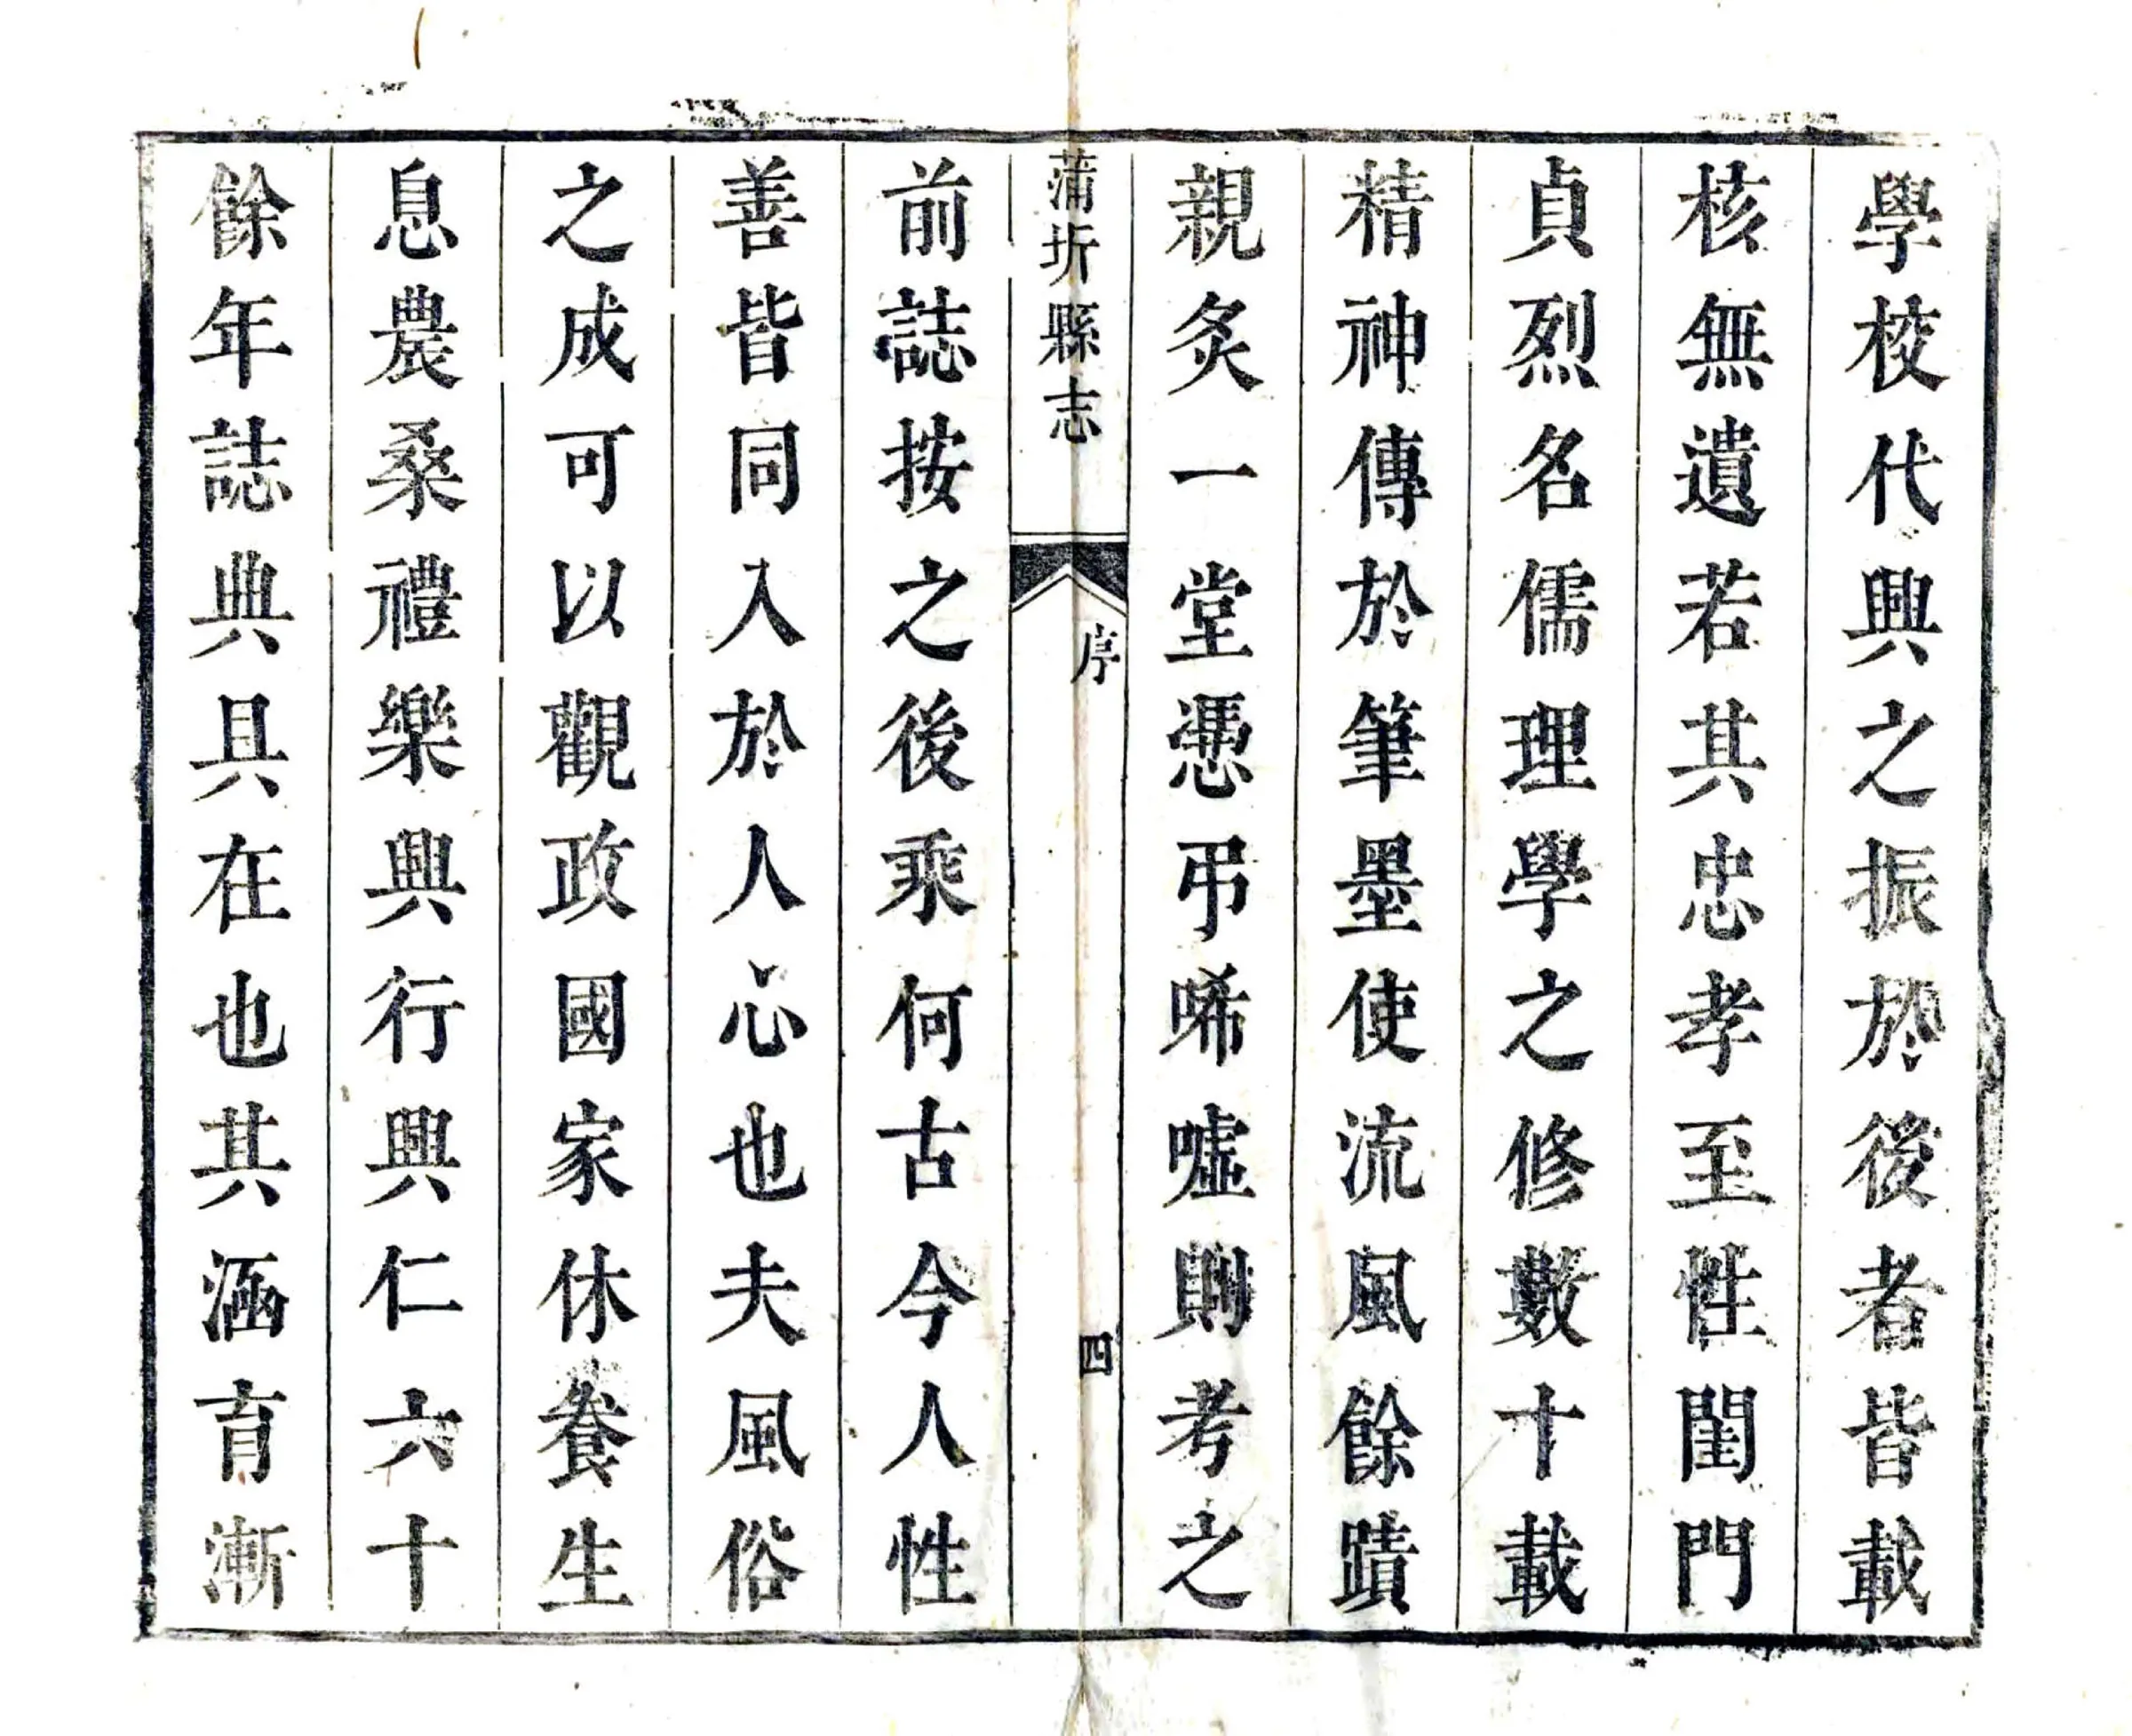 學校代興之振於後者皆載
核無遺若其忠孝至性閨門
貞烈名儒理學之修數十載
精神傳於筆墨使流風餘蹟
親炙一堂憑弔唏噓則考之
蒲圻縣志
序
四
前誌按之後乘何古今人性
善皆同入於人心也夫風俗
之成可以觀政國家休養生
息農桑禮樂興行興仁六十
餘年誌典具在也其涵育漸